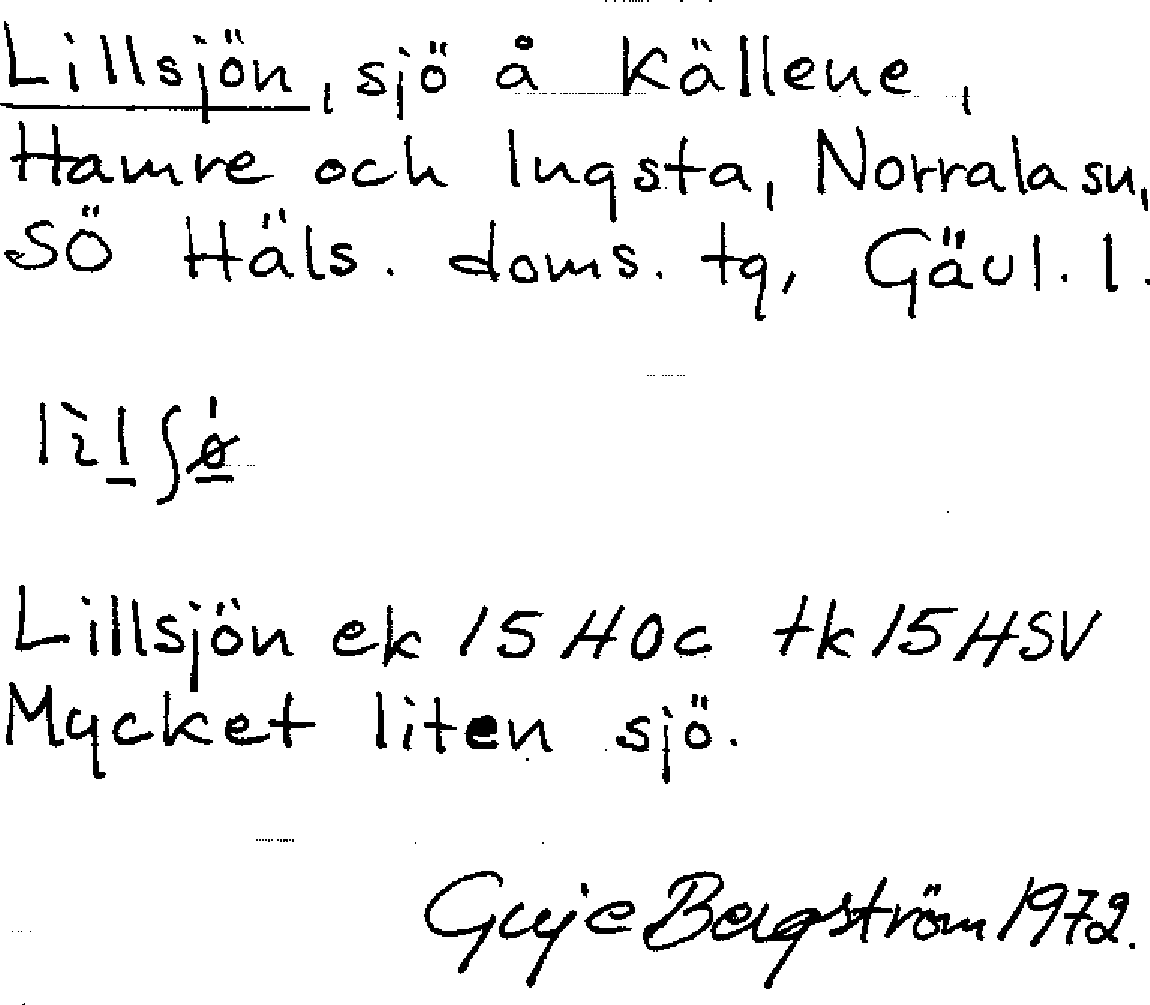 Lillsjön, sjö å Källene,
Hamre och Ingsta, Norrala sn,
SÖ Häls. doms. tg, Gävl. l.
Lillsjön ek 15 H 0c tk 15 H SV
Mycket liten sjö.
Bergström 1972.